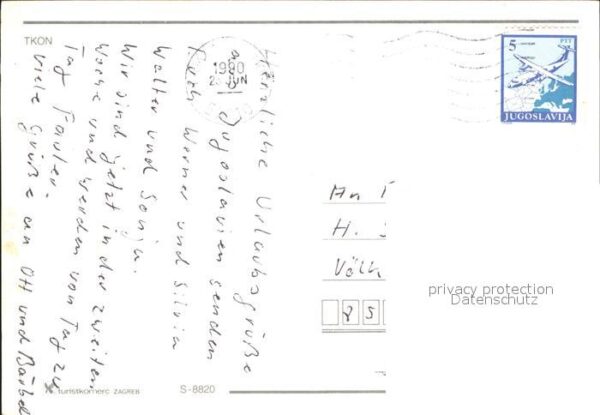 TKON
1990
2 JUN
5
PTT
JUGOSLAVIJA
Herzliche Urlaubsgrüße
aus Jugoslavien senden
Euch Werner und Silvia
Walter und Sonja.
Wir sind jetzt in der zweiten
Woche und werden von Tag zu
Tag fauler.
Viele Grüße an Ott und Bärbel
An F
H.
Völk
85
privacy protection
Datenschutz
turistkomerc ZAGREB
S-8820